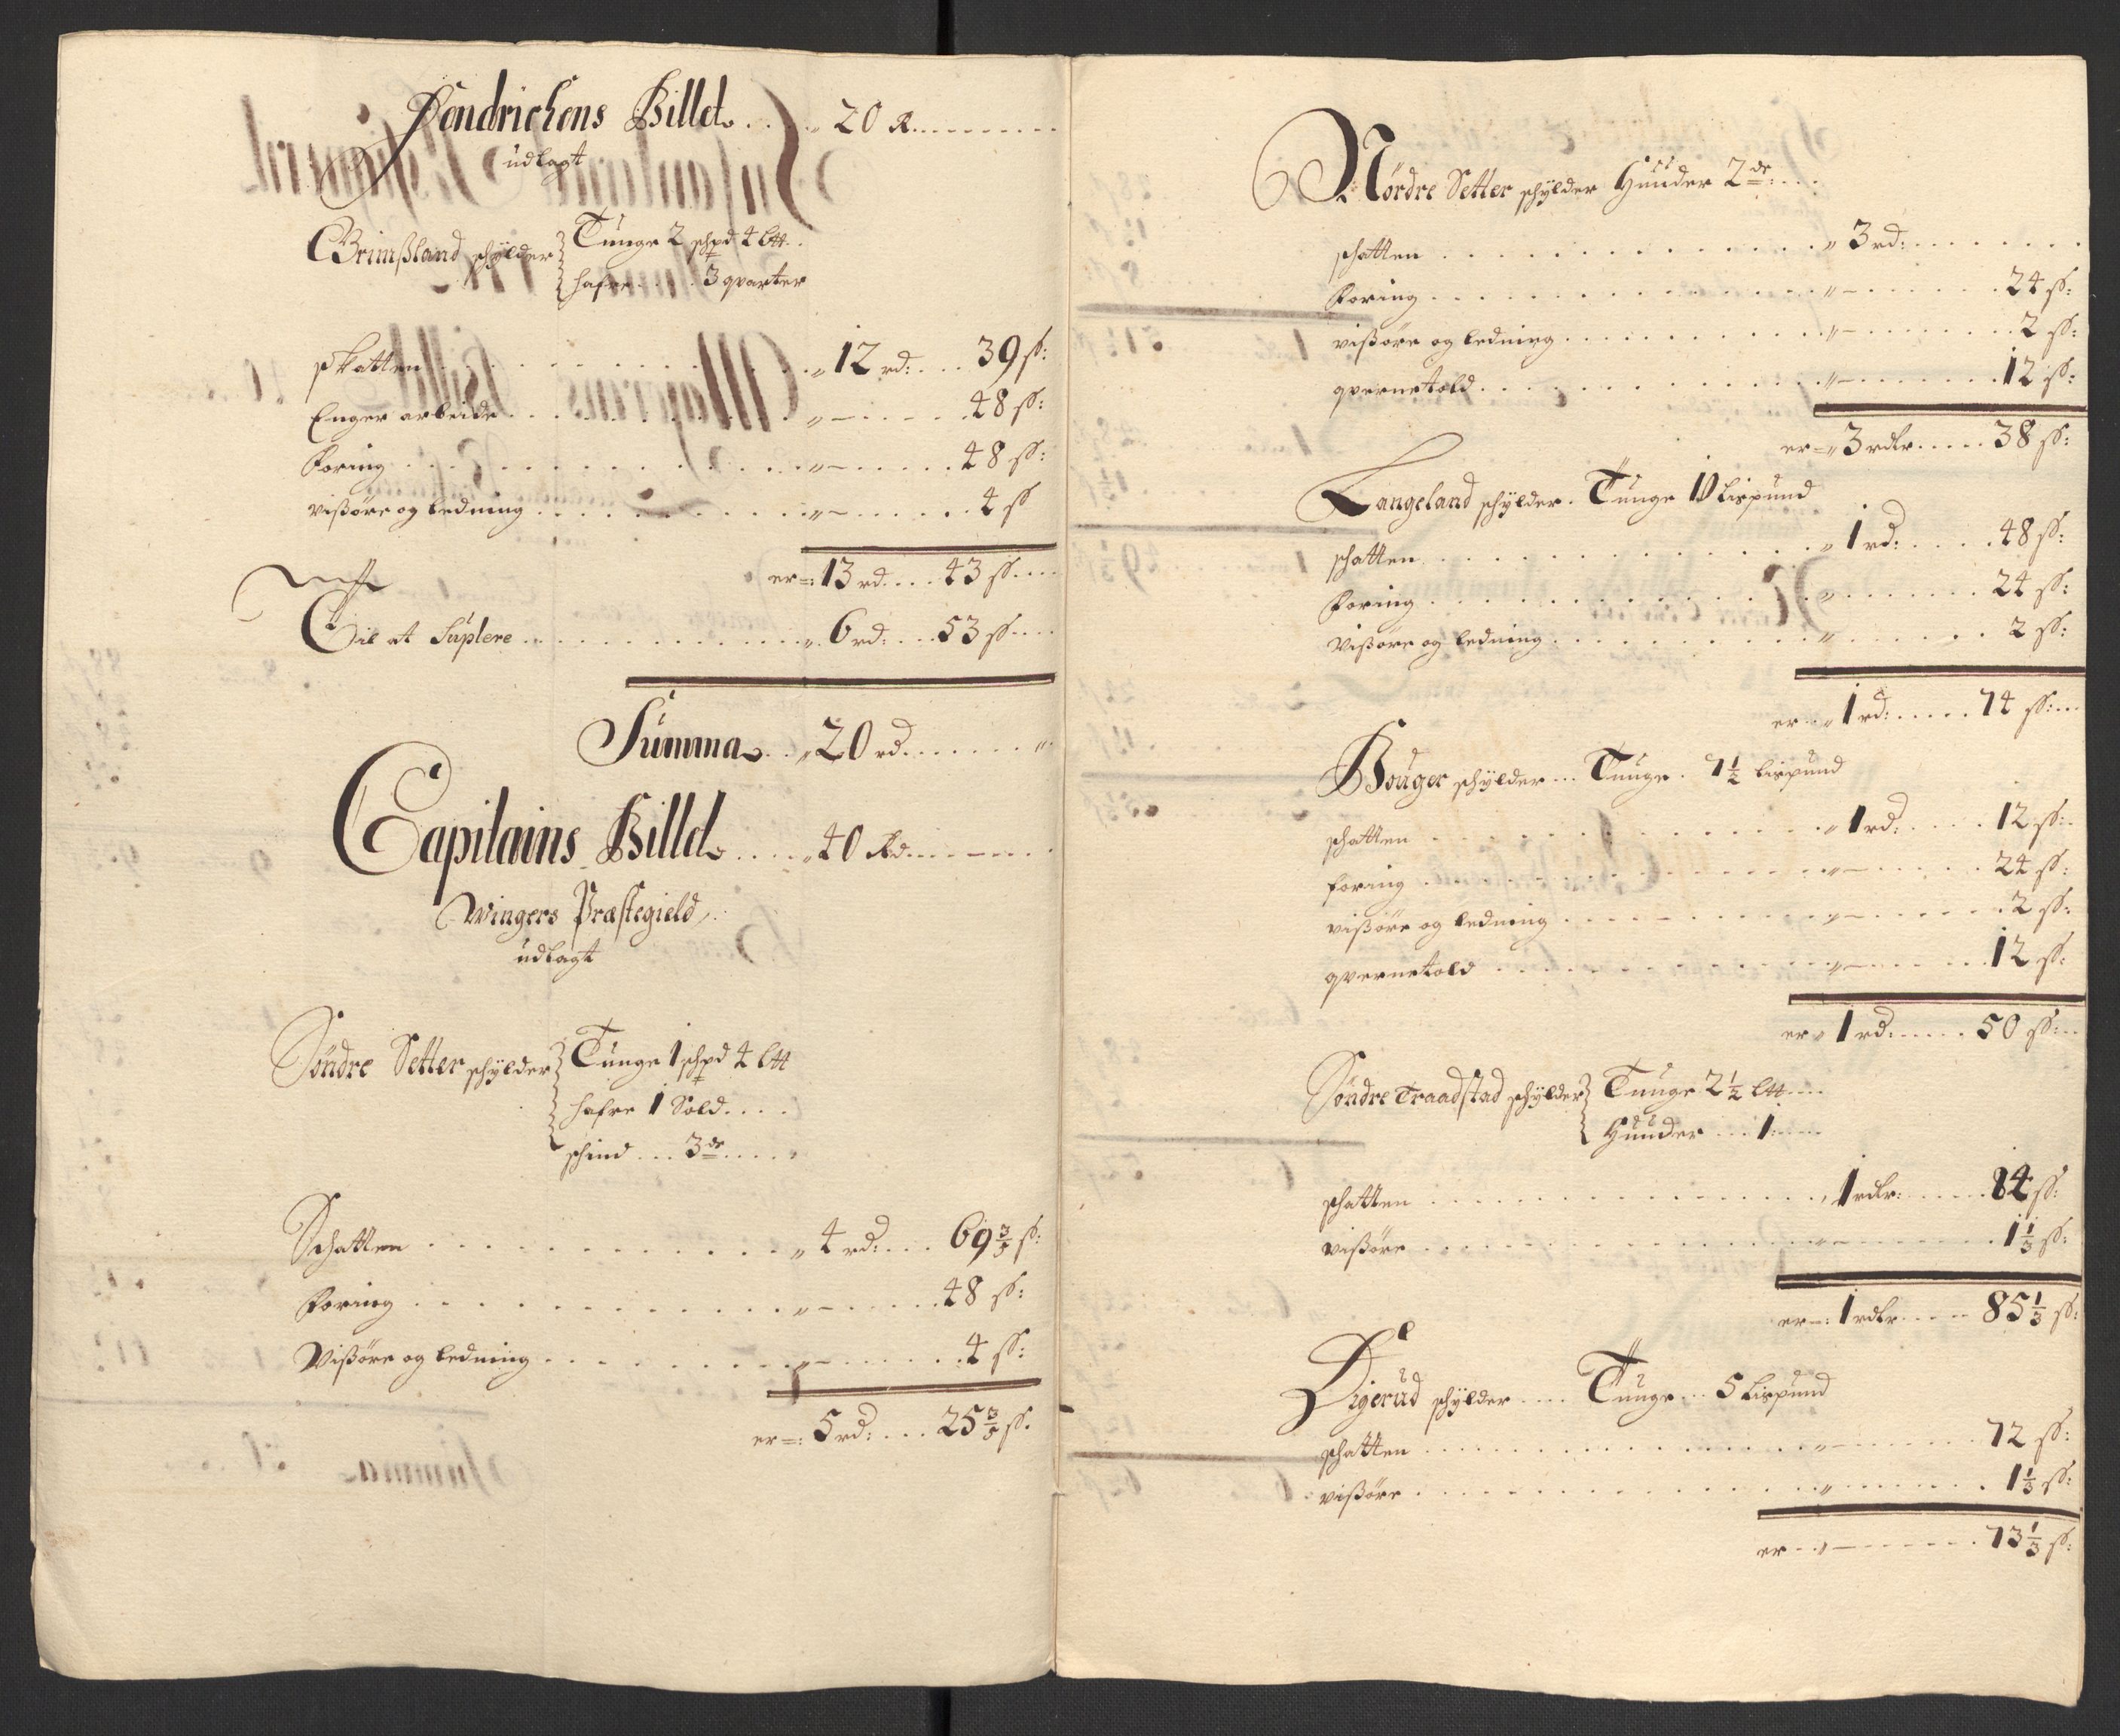 Fendrichens Billet .... 20 R.........
udlagt
Grimßland schÿlder Tunge 2 schpd 4 ltt..
hafre ..... 3 qvarter
skatten ........... 12 rd: ... 39 ß:
Enger arbeide ........... „ – ..... 48 ß:
Foring ........... „ – ..... 48 ß:
vißøre og ledning ........... „ – ..... 4 ß
er =: 13 rd .... 43 ß....
Til at Suplere ........... 6 rd: ... 53 ß....
Summa .. „ 20 rd ....... „.
Capitains Billet .... „ 40 Rd..........
Wingers Præstegield
udlagt
Söndre Setter schÿlder Tunge 1 schpd 4 ltt
hafre 1 Sold....
schind ... 3de ....
Schatten ........... „ 4 rd: ... 69 3/5 ß:
Foring ........... „ – ..... 48 ß:
Vißøre og ledning ........... „ – ..... 4 ß:
er =: 5 rd: ... 25 3/5 ß.
Nördre Setter schÿlder Huuder 2de: ...
schatten ........... „ 3 rd: .......
Foring ........... „ – ..... 24 ß:
vißøre og ledning ........... „ – ..... 2 ß:
qvernetold ........... „ – ..... 12 ß:
er = „ 3 rdlr ..... 38 ß:
Langeland schÿlder . Tunge 10 Lispund
schatten ........... „ 1 rd: ..... 48 ß:
Foring ........... „ ..... 24 ß:
Vißøre og ledning ........... „ ..... 2 ß:
er .. „ 1 rd: ..... 74 ß: ...
Houger schÿlder ... Tunge . 7 1/2 lispund
schatten ........... „ 1 rd: ..... 12 ß:
foring ........... „ – ..... 24 ß:
vißøre og ledning ........... „ – ..... 2 ß:
qvernetold ........... „ – ..... 12 ß:
er „ 1 rd ..... 50 ß: ..
Söndre Traadstad schÿlder Tunge 2 1/2 ltt ....
Huuder ... 1 ....
schatten ........... „ 1 rdlr: ..... 84 ß:
vißøre ........... „ – ..... 1 1/3 ß:
er =: 1 rdlr .... 85 1/3 ß:
Digerud schÿlder .... Tunge ... 5 Lispund
schatten ........... „ – ..... 72 ß:
vißøre ........... „ ..... 1 1/3 ß:
er .. „ – ..... 73 1/3 ß: